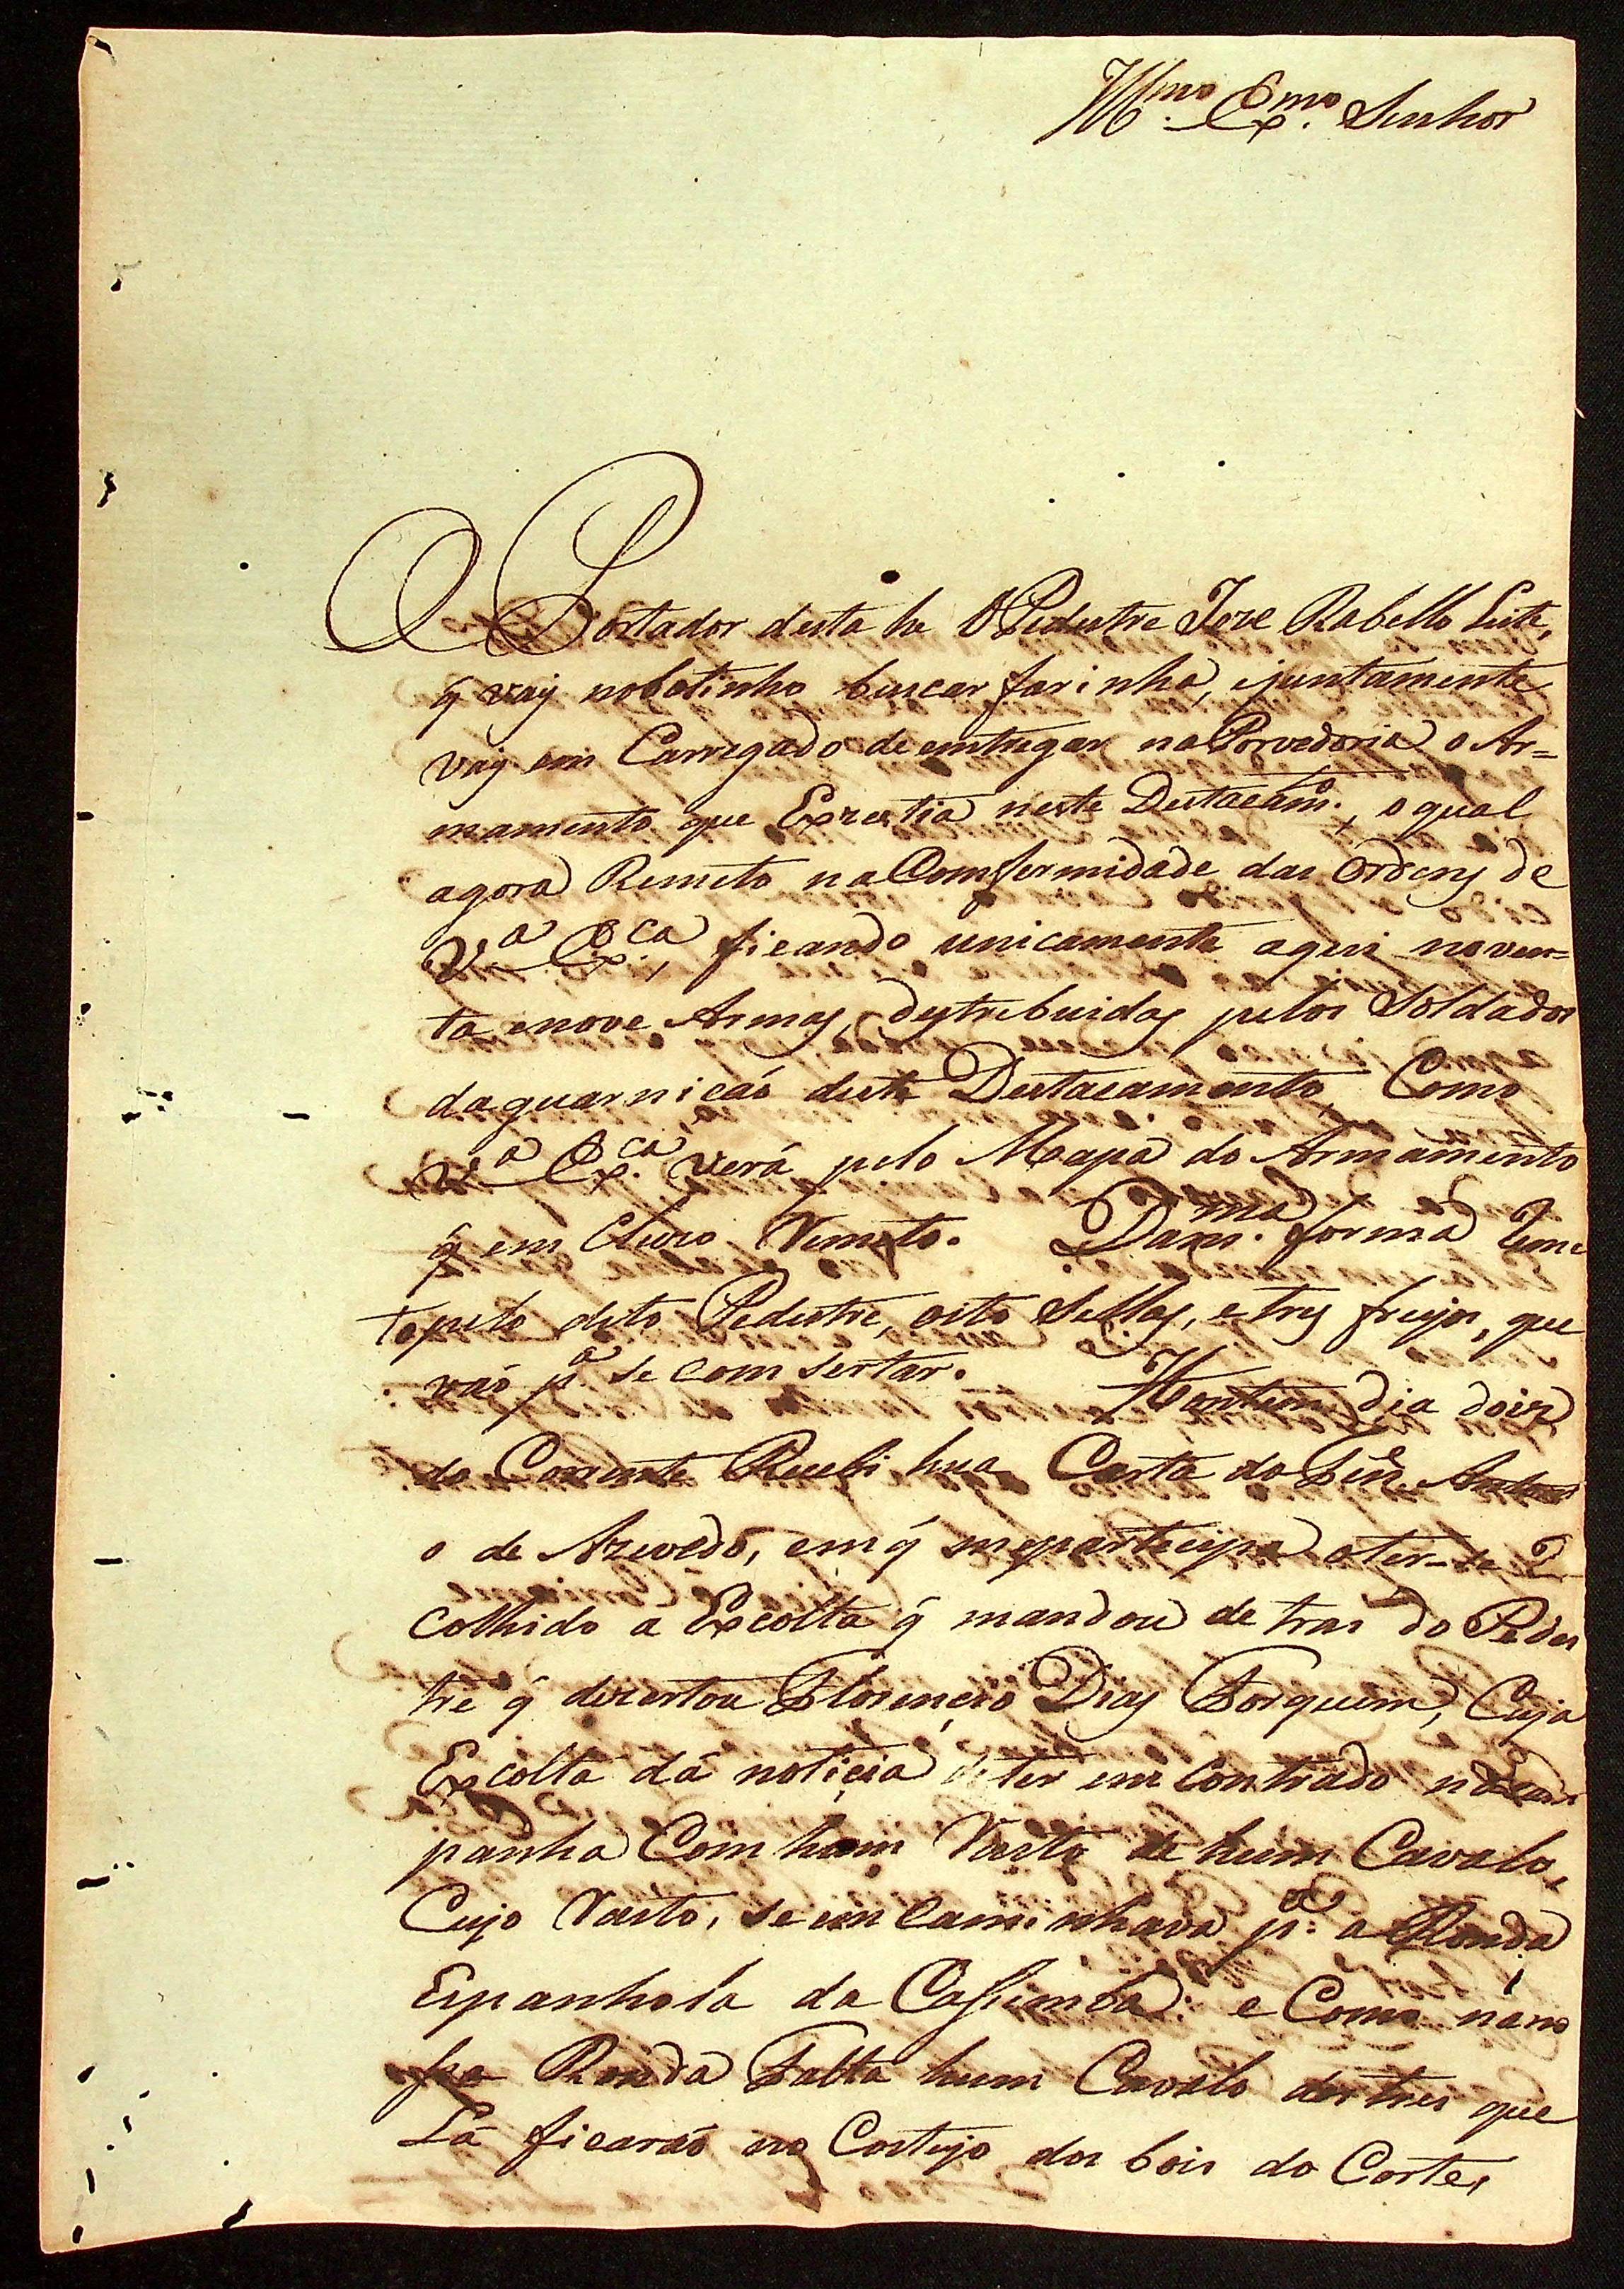 Illmo. Exmo. Senhor
O Portador desta he O Pedestre Joze Rabello Leite,
q̃ vay nobotinho buscar farinha, ejuntamente
vay em Carregado de entregar na Porvedoria o Ar=
mamento que Exzestia neste Destacam.to, o qual
agora Remeto na Comfermidade das Ordens de
Va. Exca., ficando unicamente aqui noven=
ta enove Armas, destrebuidas pelos Soldados
daguarnicaõ deste Destacamento, Como
Va. Exca. verá pelo Mapa do Armamento
q̃ em Cluzo Remeto. Dam.ma forma Reme
to pelo dito Pedestre, oito Sellas, e tres freyos, que
vaõ p.a se comsertar. Hontem dia dois
do Corrente Recebi hua Carta do Ten.e Antoni
o de Azevedo, em q̃ meparticipa o ter-se Re
colhido a Excolta q̃ mandou de tras do Pedes
tre q̃ dezertou Florencio Dias Forquim, Cuja
Excolta dá noticia de ter em Contrado na Cam
panha Com hum Rasto de hum Cavalo,
Cujo Rasto, se em Caminhava p.a a Ronda
Espanhola da Casimba: e Como na no
ssa Ronda Falta hum Cavalo dos tres que
Lá ficaraõ no Costejo dos bois do Corte,